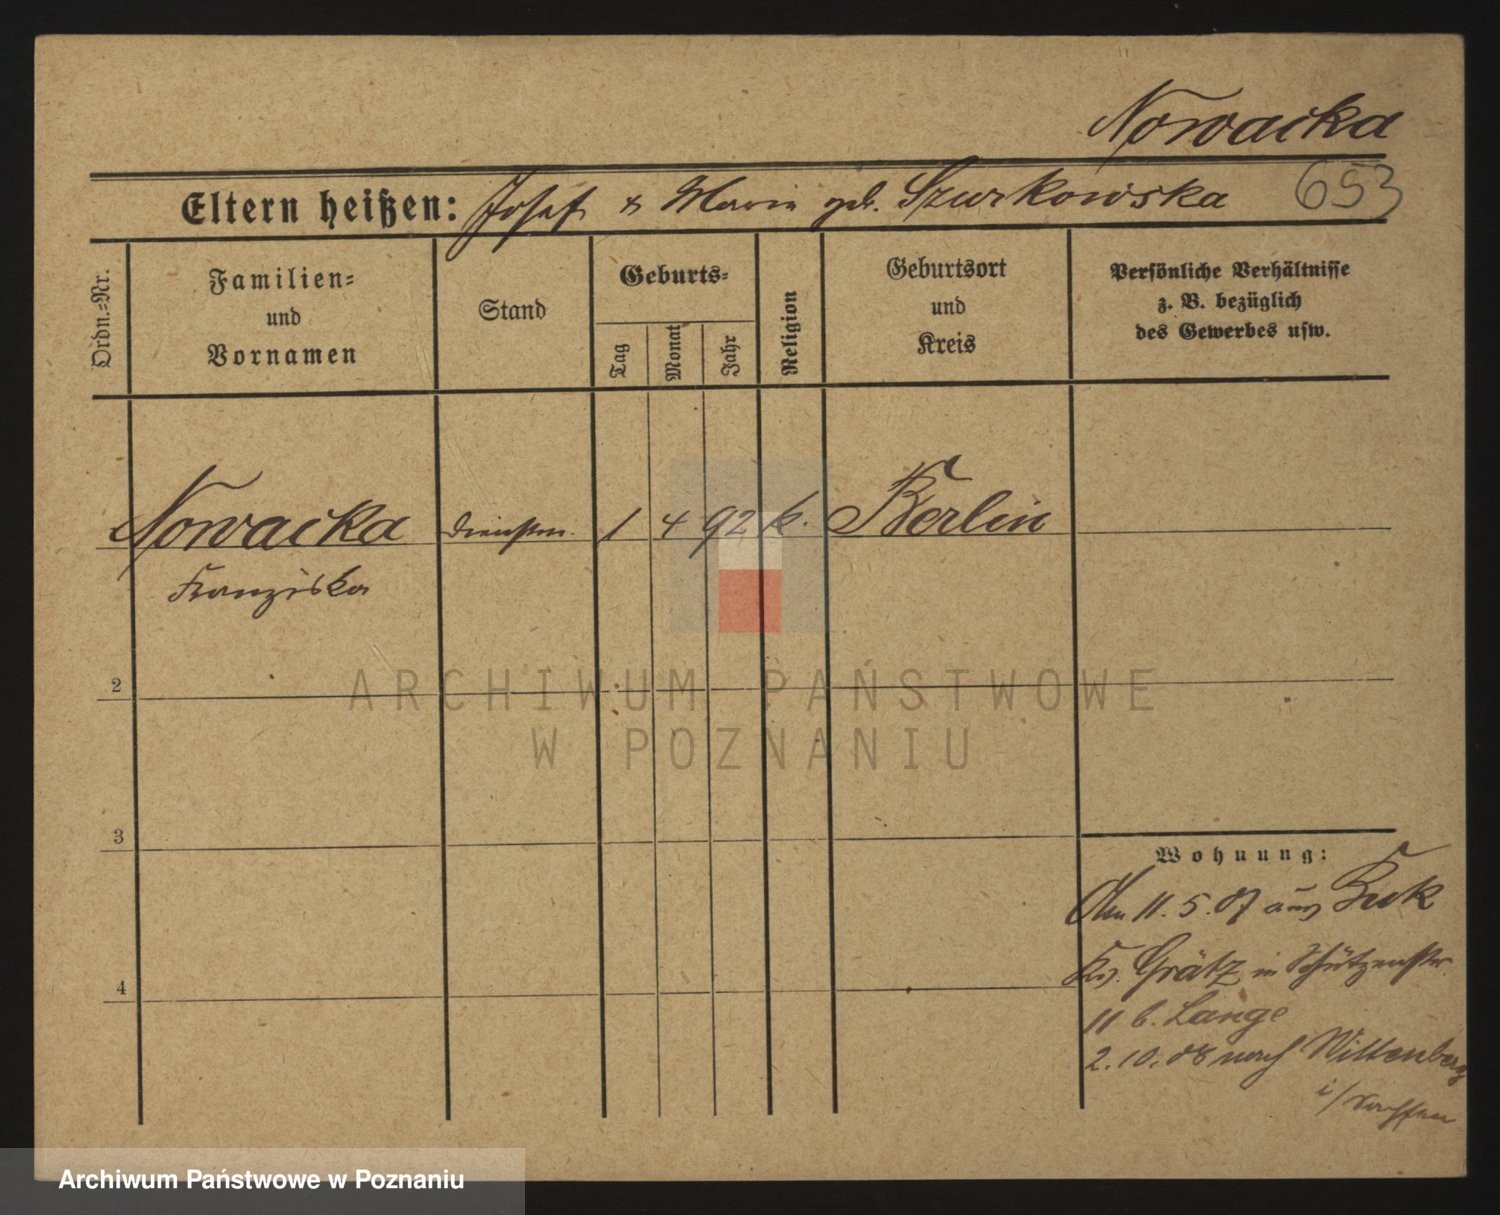 Nowacka
Eltern heißen: Josef & Marie geb. Szurkowska 653
Ordn.=Nr.
Familien=
und
Vornamen
Stand
Geburts=
Tag
Monat
Jahr
Religion
Geburtsort
und
Kreis
Persönliche Verhältnisse
z. B. bezüglich
des Gewerbes usw.
Nowacka Dienstm. 1 4 92 k. Berlin
Franziska
2
3
4
Wohnung:
Am 11.5.07 aus Buk
Kr. Grätz in Schützenstr.
11 b. Lange
2.10.08 nach Wittenberg
i/Sachsen
ARCHIWUM PAŃSTWOWE
W POZNANIU
Archiwum Państwowe w Poznaniu